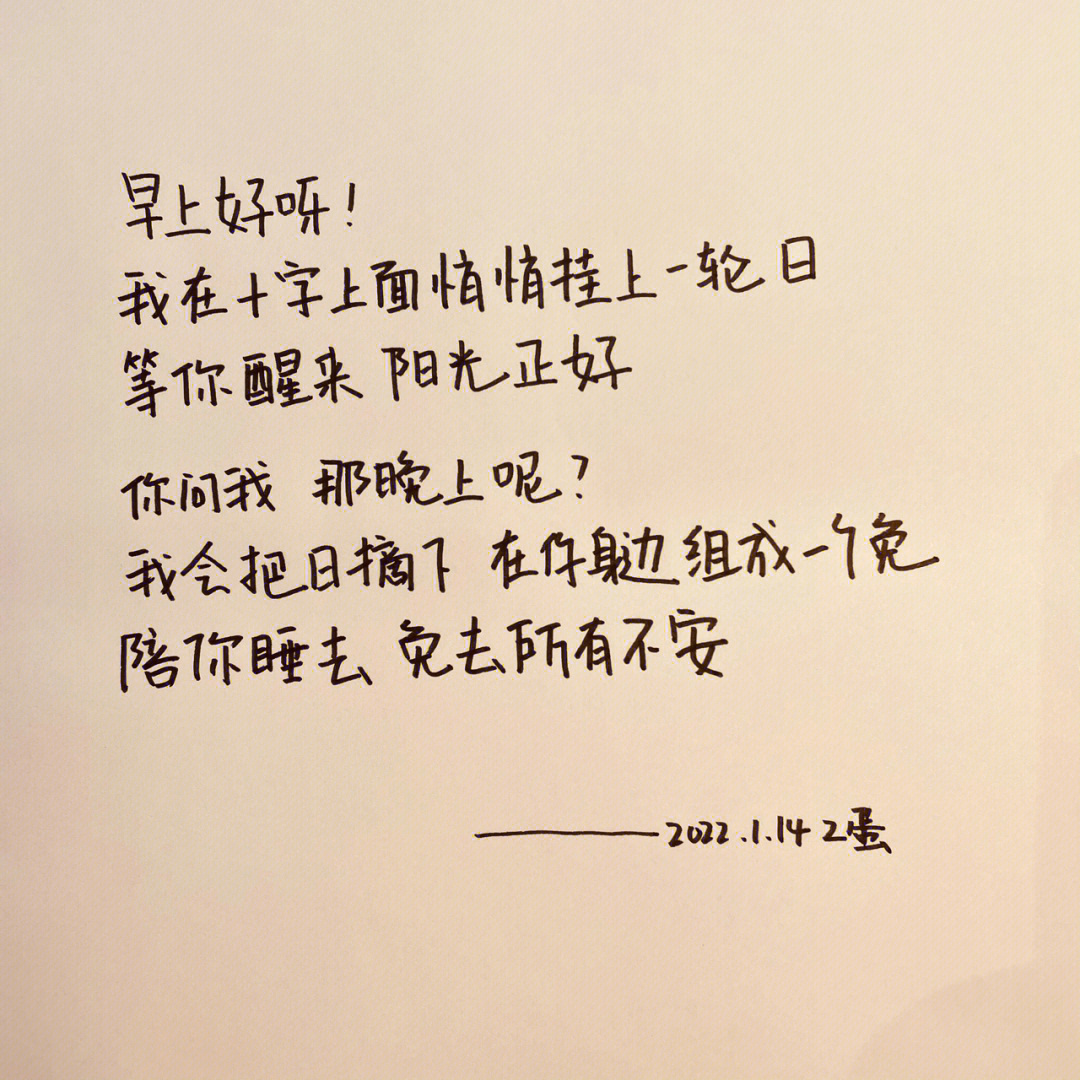 早上好呀!
我在十字上面悄悄挂上一轮日
等你醒来 阳光正好
你问我 那晚上呢?
我会把日摘下 在你身边组成一个免
陪你睡去 免去所有不安
——2022.1.14 2蛋